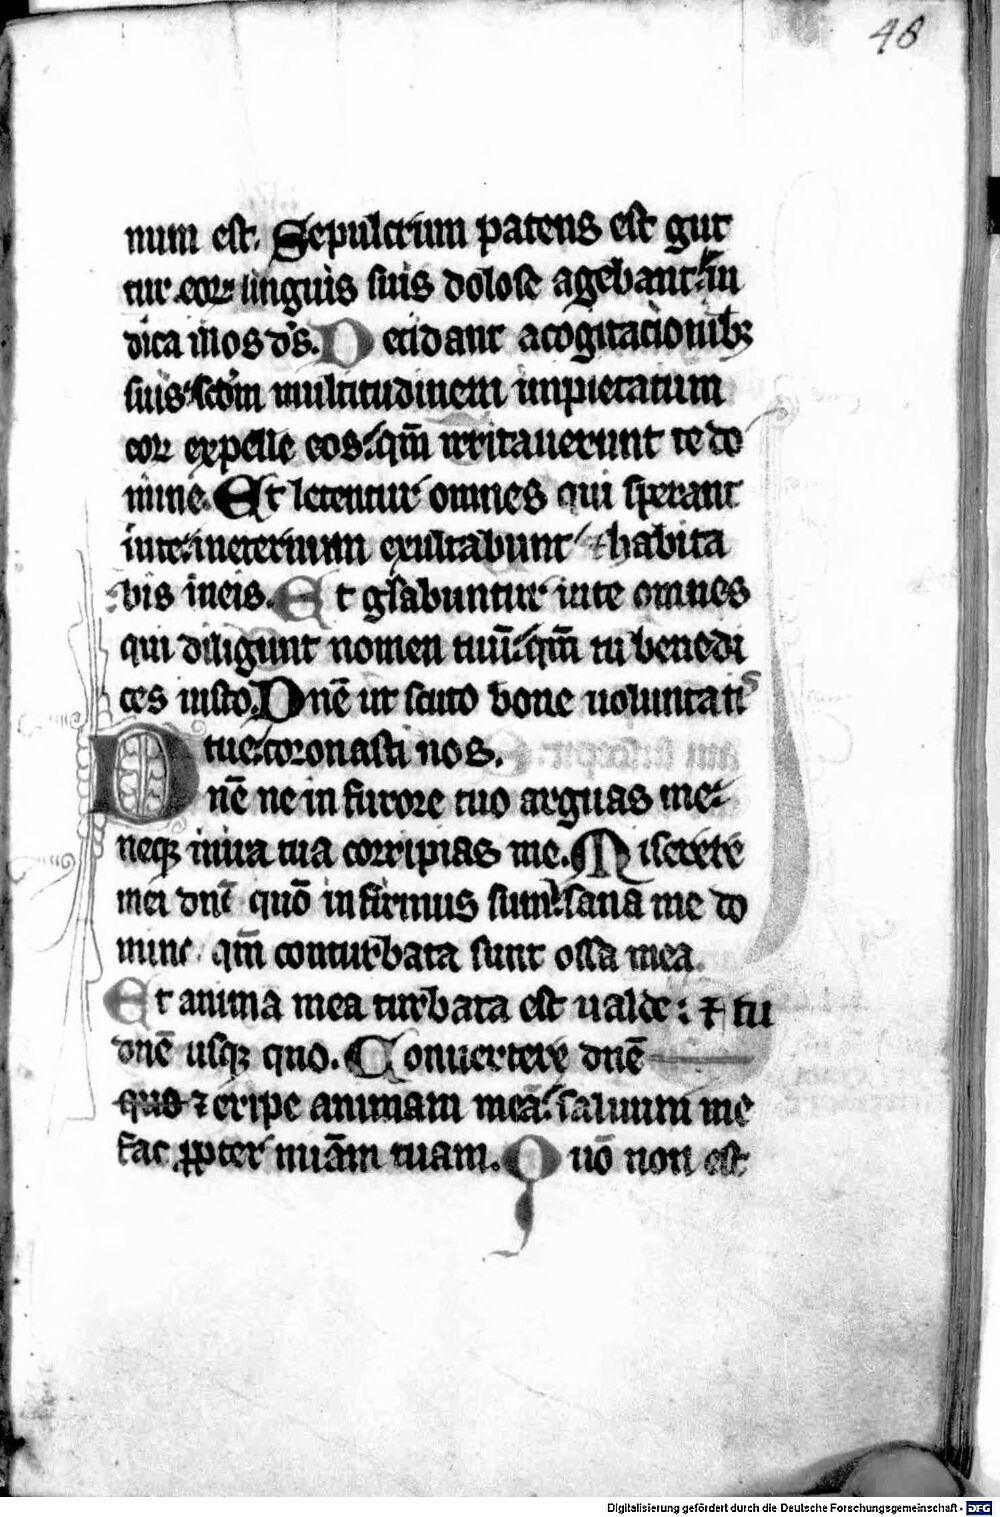 48
num est. Sepulcrum patens est gut
tur eoꝝ linguis suis dolose agebant: iu
dica illos dꝰs. Decidant a cogitacionibꝫ
suis: scd̄m multitudinem impietatum
eoꝝ expelle eos: qm̄ irritauerunt te do
mine. Et letentur omnes qui sperant
in te: in eternum exultabunt ⁊ habita
bis in eis. Et gl̄abuntur in te omnes
qui diligunt nomen tuū: qm̄ tu benedi
ces iusto. Dn̄e ut scuto bone uoluntatis
tue: coronasti nos.
Dn̄e ne in furore tuo arguas me:
neqꝫ in ira tua corripias me. Miserere
mei dn̄e quō infirmus sum: sana me do
mine qm̄ conturbata sunt ossa mea.
Et anima mea turbata est ualde: ⁊ tu
dn̄e usqꝫ quo. Conuertere dn̄e
quo ⁊ eripe animam meā: saluum me
fac ꝓpter miā̄m tuam. Quō non est
Digitalisierung gefördert durch die Deutsche Forschungsgemeinschaft - DFG